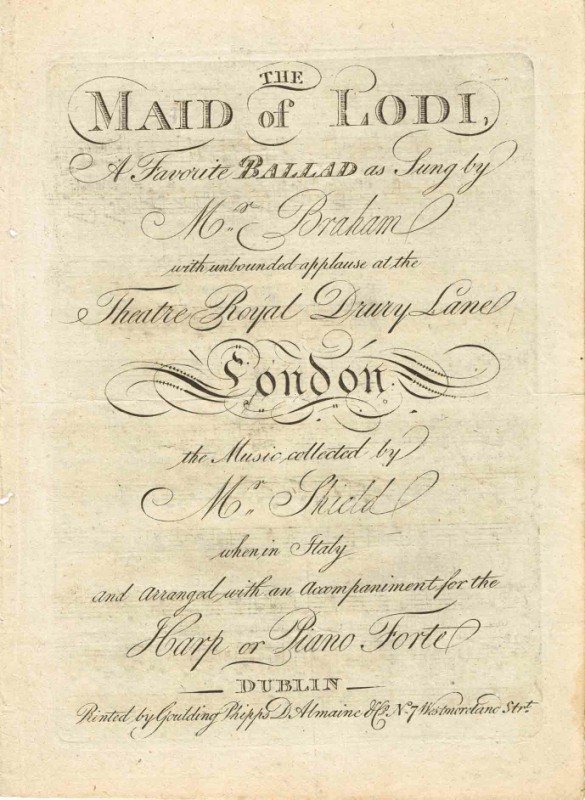 THE
MAID of LODI,
A Favorite BALLAD as Sung by
Mr. Braham
with unbounded applause at the
Theatre Royal Drury Lane
London.
the Music collected by
Mr. Shield
when in Italy
and Arranged with an Accompaniment for the
Harp or Piano Forte
DUBLIN
Printed by Goulding Phipps D'Almaine & Co. No. 7 Westmorland Strt.